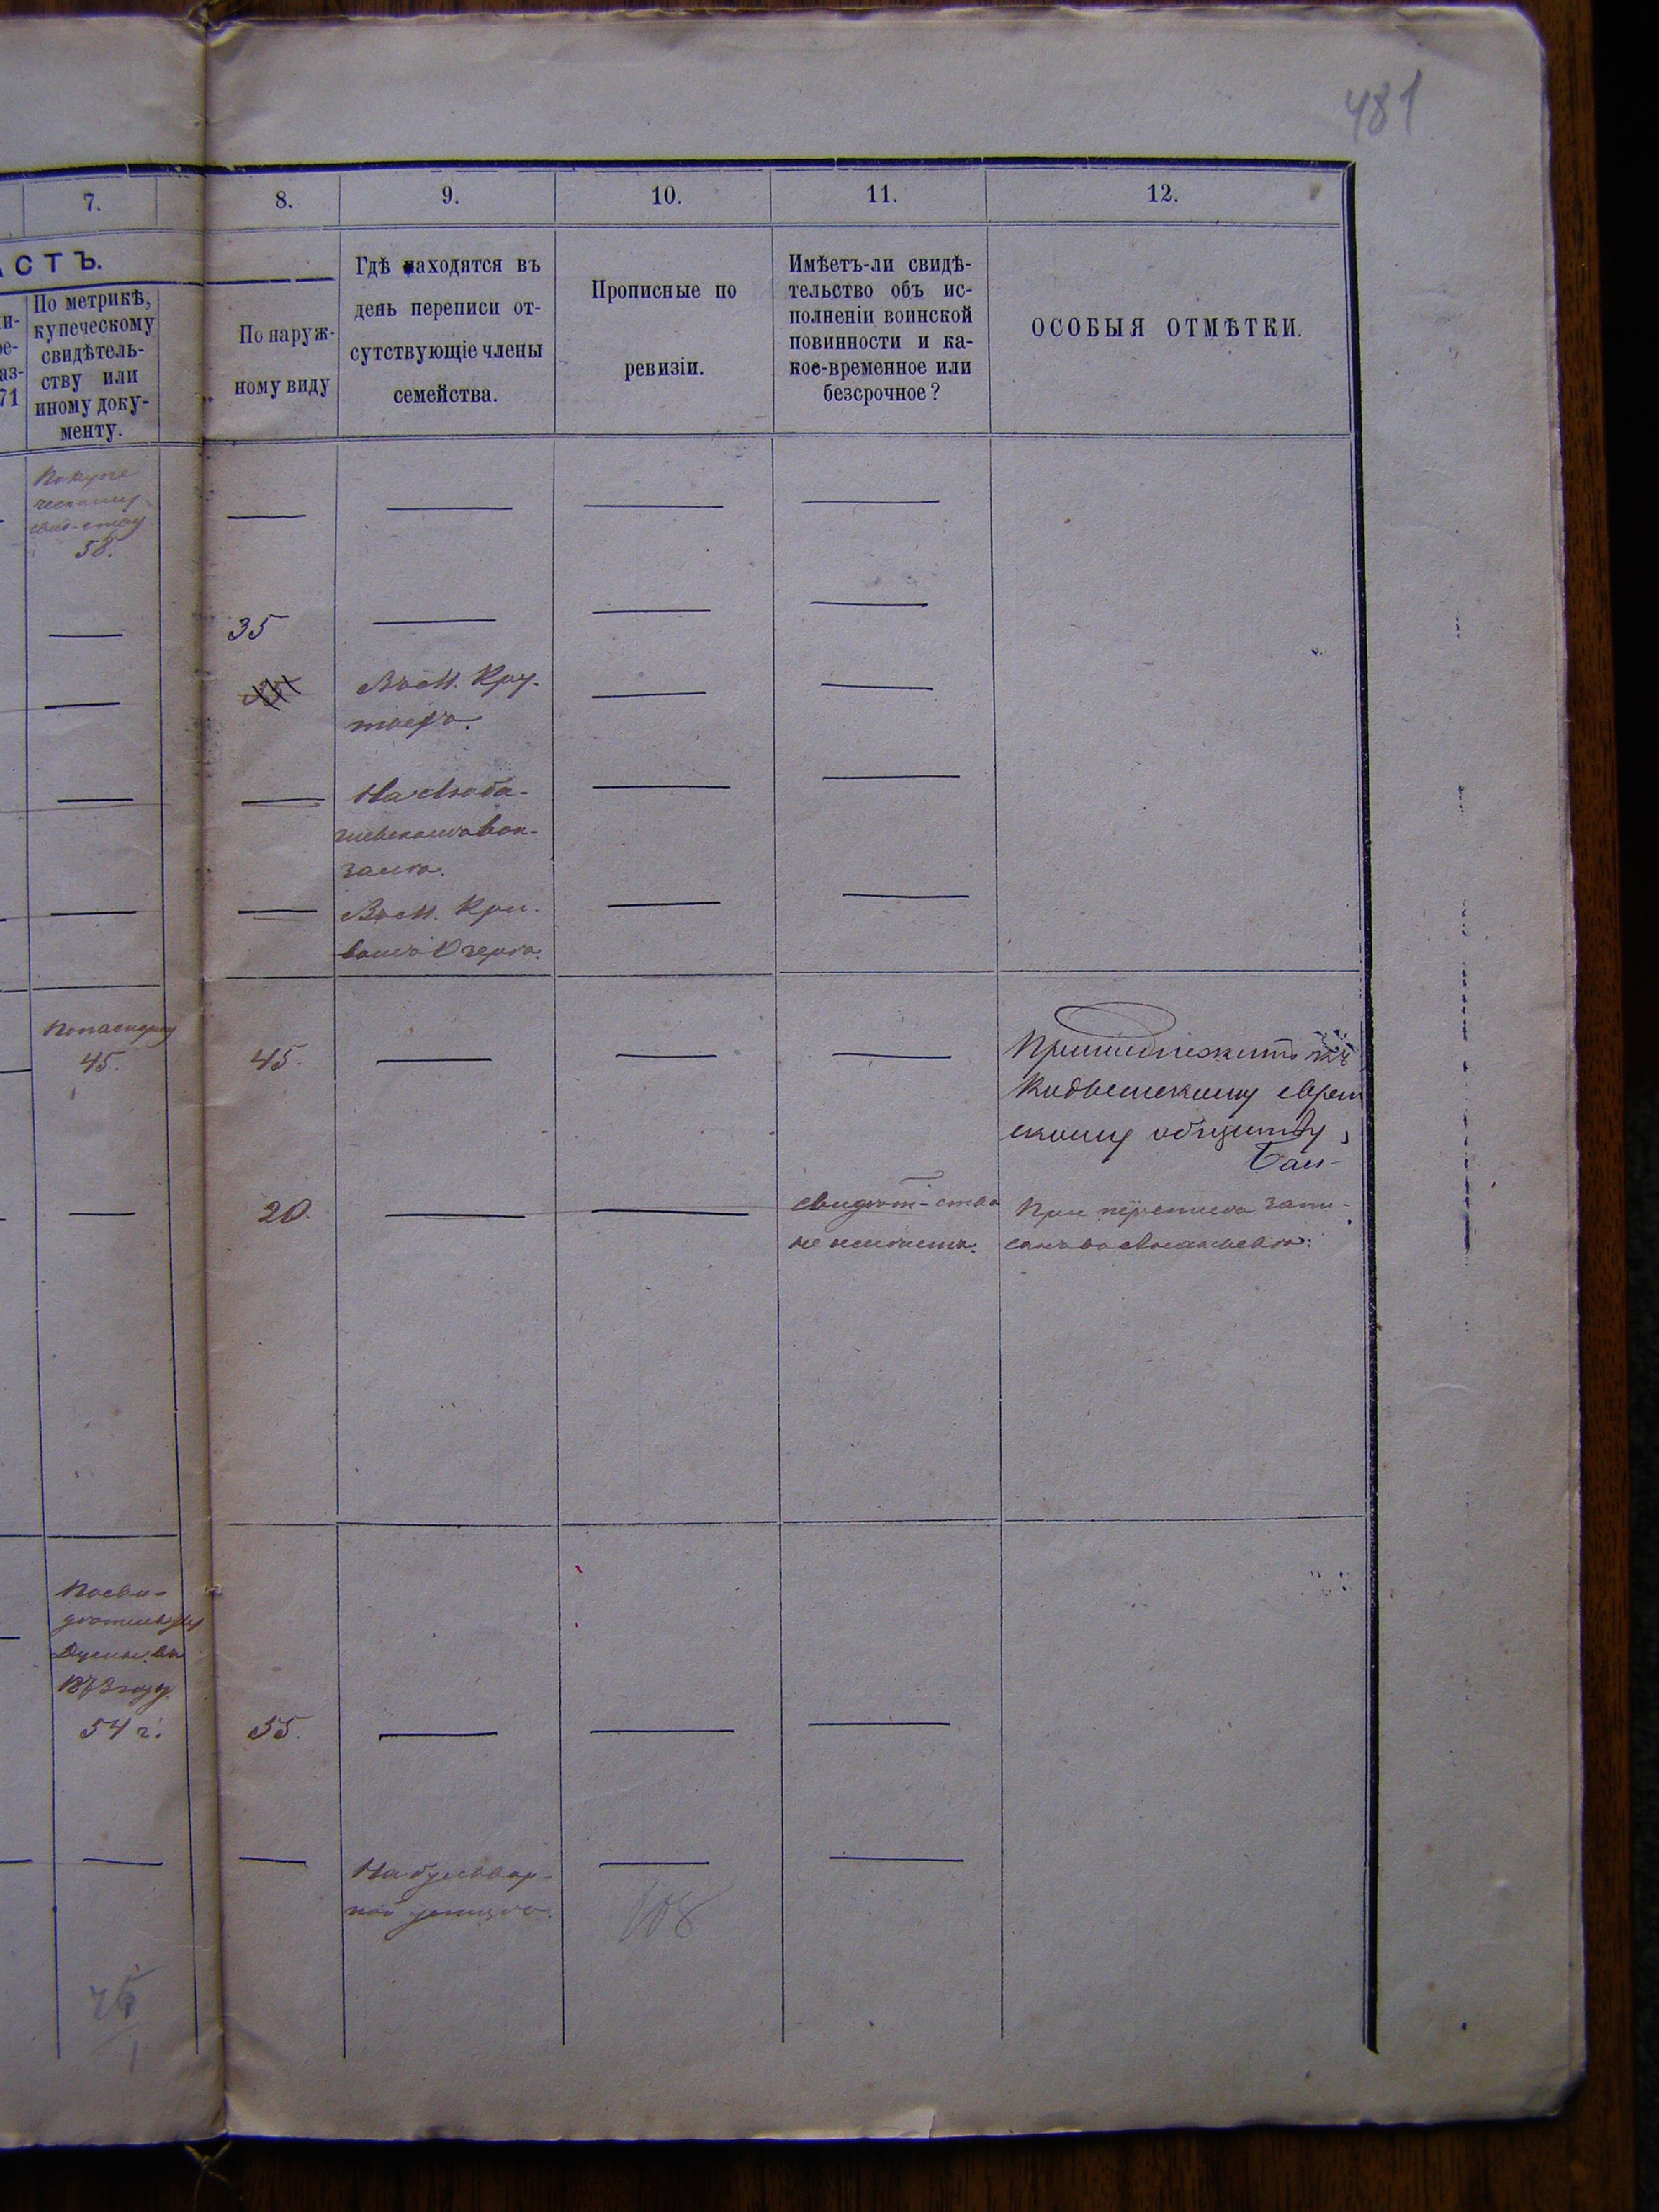 481
7.
8.
9.
10.
11.
12.
АСТЪ.
По метрикѣ,
купеческому
свидѣтель-
ству или
иному доку-
менту.
71
По наруж-
ному виду
Гдѣ находятся въ
день переписи от-
сутствующіе члены
семейства.
Прописные по
ревизіи.
Имѣетъ-ли свидѣ-
тельство объ ис-
полненіи воинской
повинности и ка-
кое-временное или
безсрочное?
ОСОБЫЯ ОТМѢТКИ.
По купе
ческому
свид-ству
58.
35
Въ М. Кру-
тыхъ.
На
вок-
залѣ.
Въ М. Кри-
вомъ Озерѣ.
По паспорту
45.
45.
Принадлежитъ къ
еврей
скому обществу
20.
свидѣт-ства
не имѣетъ.
При переписи запи-
санъ въ
По сви-
дѣтельству
Думы въ
1873 году
54 г.
55.
На бульвар-
ной улицѣ.
108